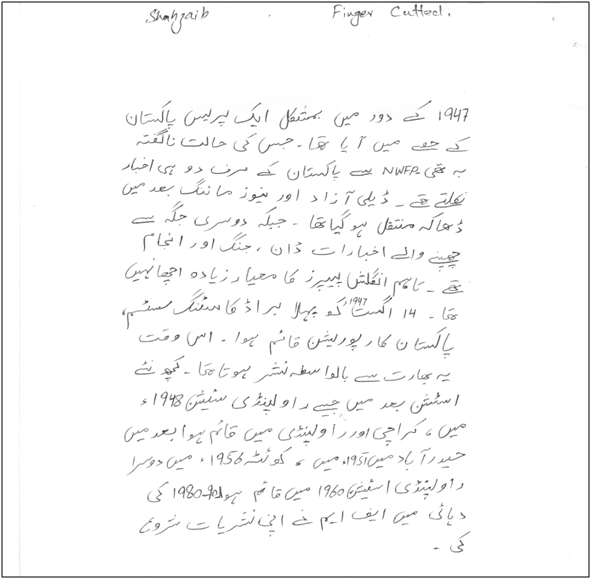 Shahzaib Finger Cutted.
1947 کے دور میں بمشکل ایک پریس پاکستان
کے حصے میں آیا تھا۔ جس کی حالت ناگفتہ
بہ تھی NWFP سے پاکستان کے صرف دو ہی اخبار
نکلتے تھے۔ ڈیلی آزاد اور نیوز مارننگ بعد میں
ڈھاکہ منتقل ہو گیا تھا۔ جبکہ دوسری جگہ سے
چھپنے والے اخبارات ڈان، جنگ اور انجام
تھے۔ تاہم انگلش پیپرز کا معیار زیادہ اچھا نہیں
تھا۔ 14 اگست 1947 کو پہلا براڈ کاسٹنگ سسٹم،
پاکستان کارپوریشن قائم ہوا۔ اس وقت
یہ بھارت سے بالواسطہ نشر ہوتا تھا۔ کچھ نئے
اسٹیشن بعد میں جیسے راولپنڈی سٹیشن 1948ء
میں، کراچی اور راولپنڈی میں قائم ہوا بعد میں
حیدر آباد میں 1951 میں، کوئٹہ 1956ء میں دوسرا
راولپنڈی اسٹیشن 1960 میں قائم ہوا 1980-90 کی
دہائی میں ایف ایم نے اپنی نشریات شروع
کی۔